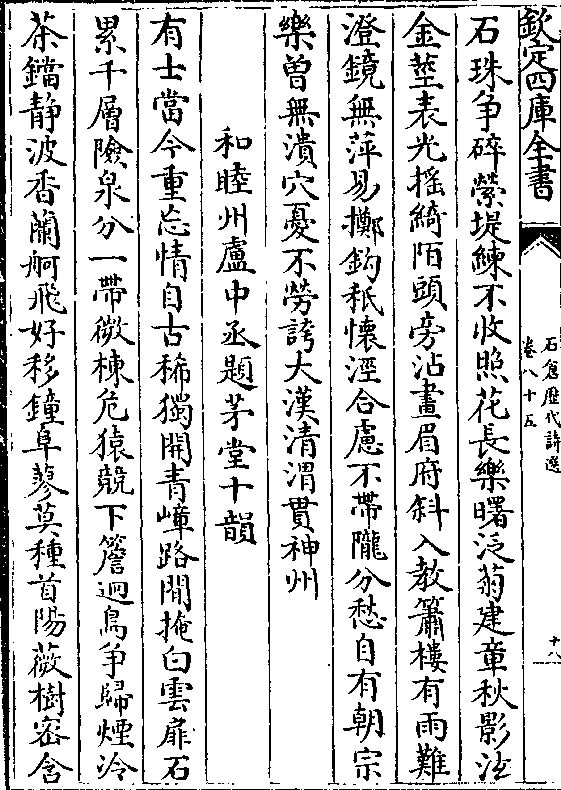 欽定四庫全書
石倉歷代詩選
卷八十五
十八
石珠爭碎縈堤練不收照花長樂曙泛菊建章秋影注
金莖表光摇綺陌頭旁沾畫眉府斜入教簫樓有雨難
澄鏡無萍易擲鈎秖懷涇合慮不帶隴分愁自有朝宗
樂曽無潰穴憂不勞誇大漢清渭貫神州
和睦州盧中丞題茅堂十韻
有士當今重忘情自古稀獨開青嶂路閒掩白雲扉石
累千層險泉分一帶微棟危猿競下簷迥鳥爭歸煙冷
茶鐺静波香蘭舸飛好移鐘阜蓼莫種首陽薇樹密含